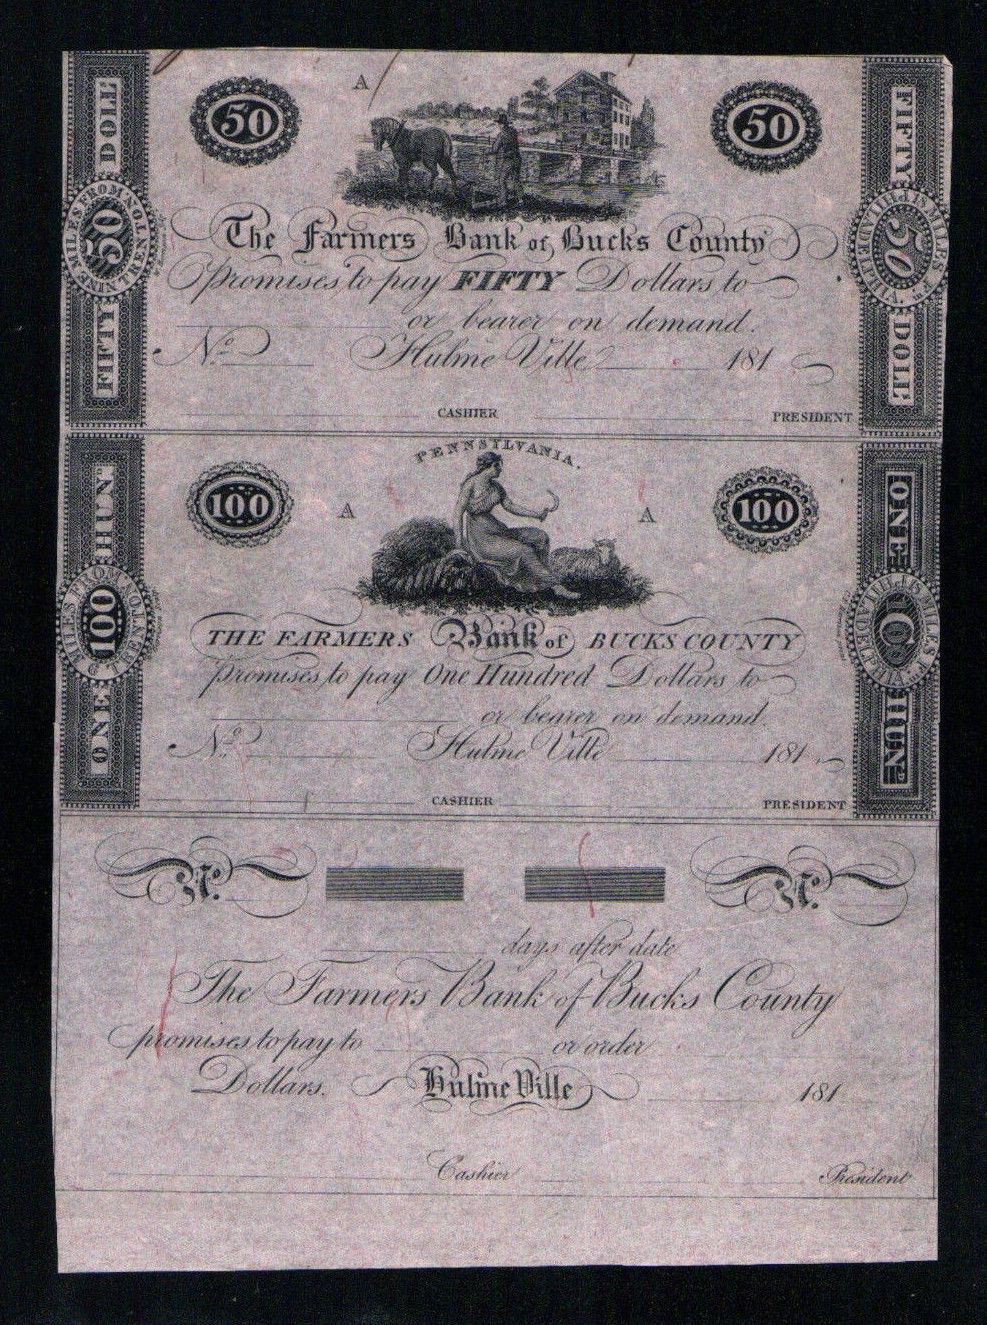 A
50
50
FIFTY 50 DOLL
NINE MILES FROM NO. ENST
FIFTY 50 DOLL
MILES Fm PHILADE
The Farmers Bank of Bucks County
Promises to pay FIFTY Dollars to
or bearer on demand.
No. Hulme Ville 181
CASHIER PRESIDENT
PENNSYLVANIA.
100 A A 100
ONE 100 HUND
MILES FROM NO. ENST
ONE HUND
MILES Fm PHILADE
THE FARMERS Bank of BUCKS COUNTY
Promises to pay One Hundred Dollars to
or bearer on demand.
No. Hulme Ville 181
CASHIER PRESIDENT
N. N.
days after date
The Farmers Bank of Bucks County
promises to pay to or order
Dollars. Hulme Ville 181
Cashier President